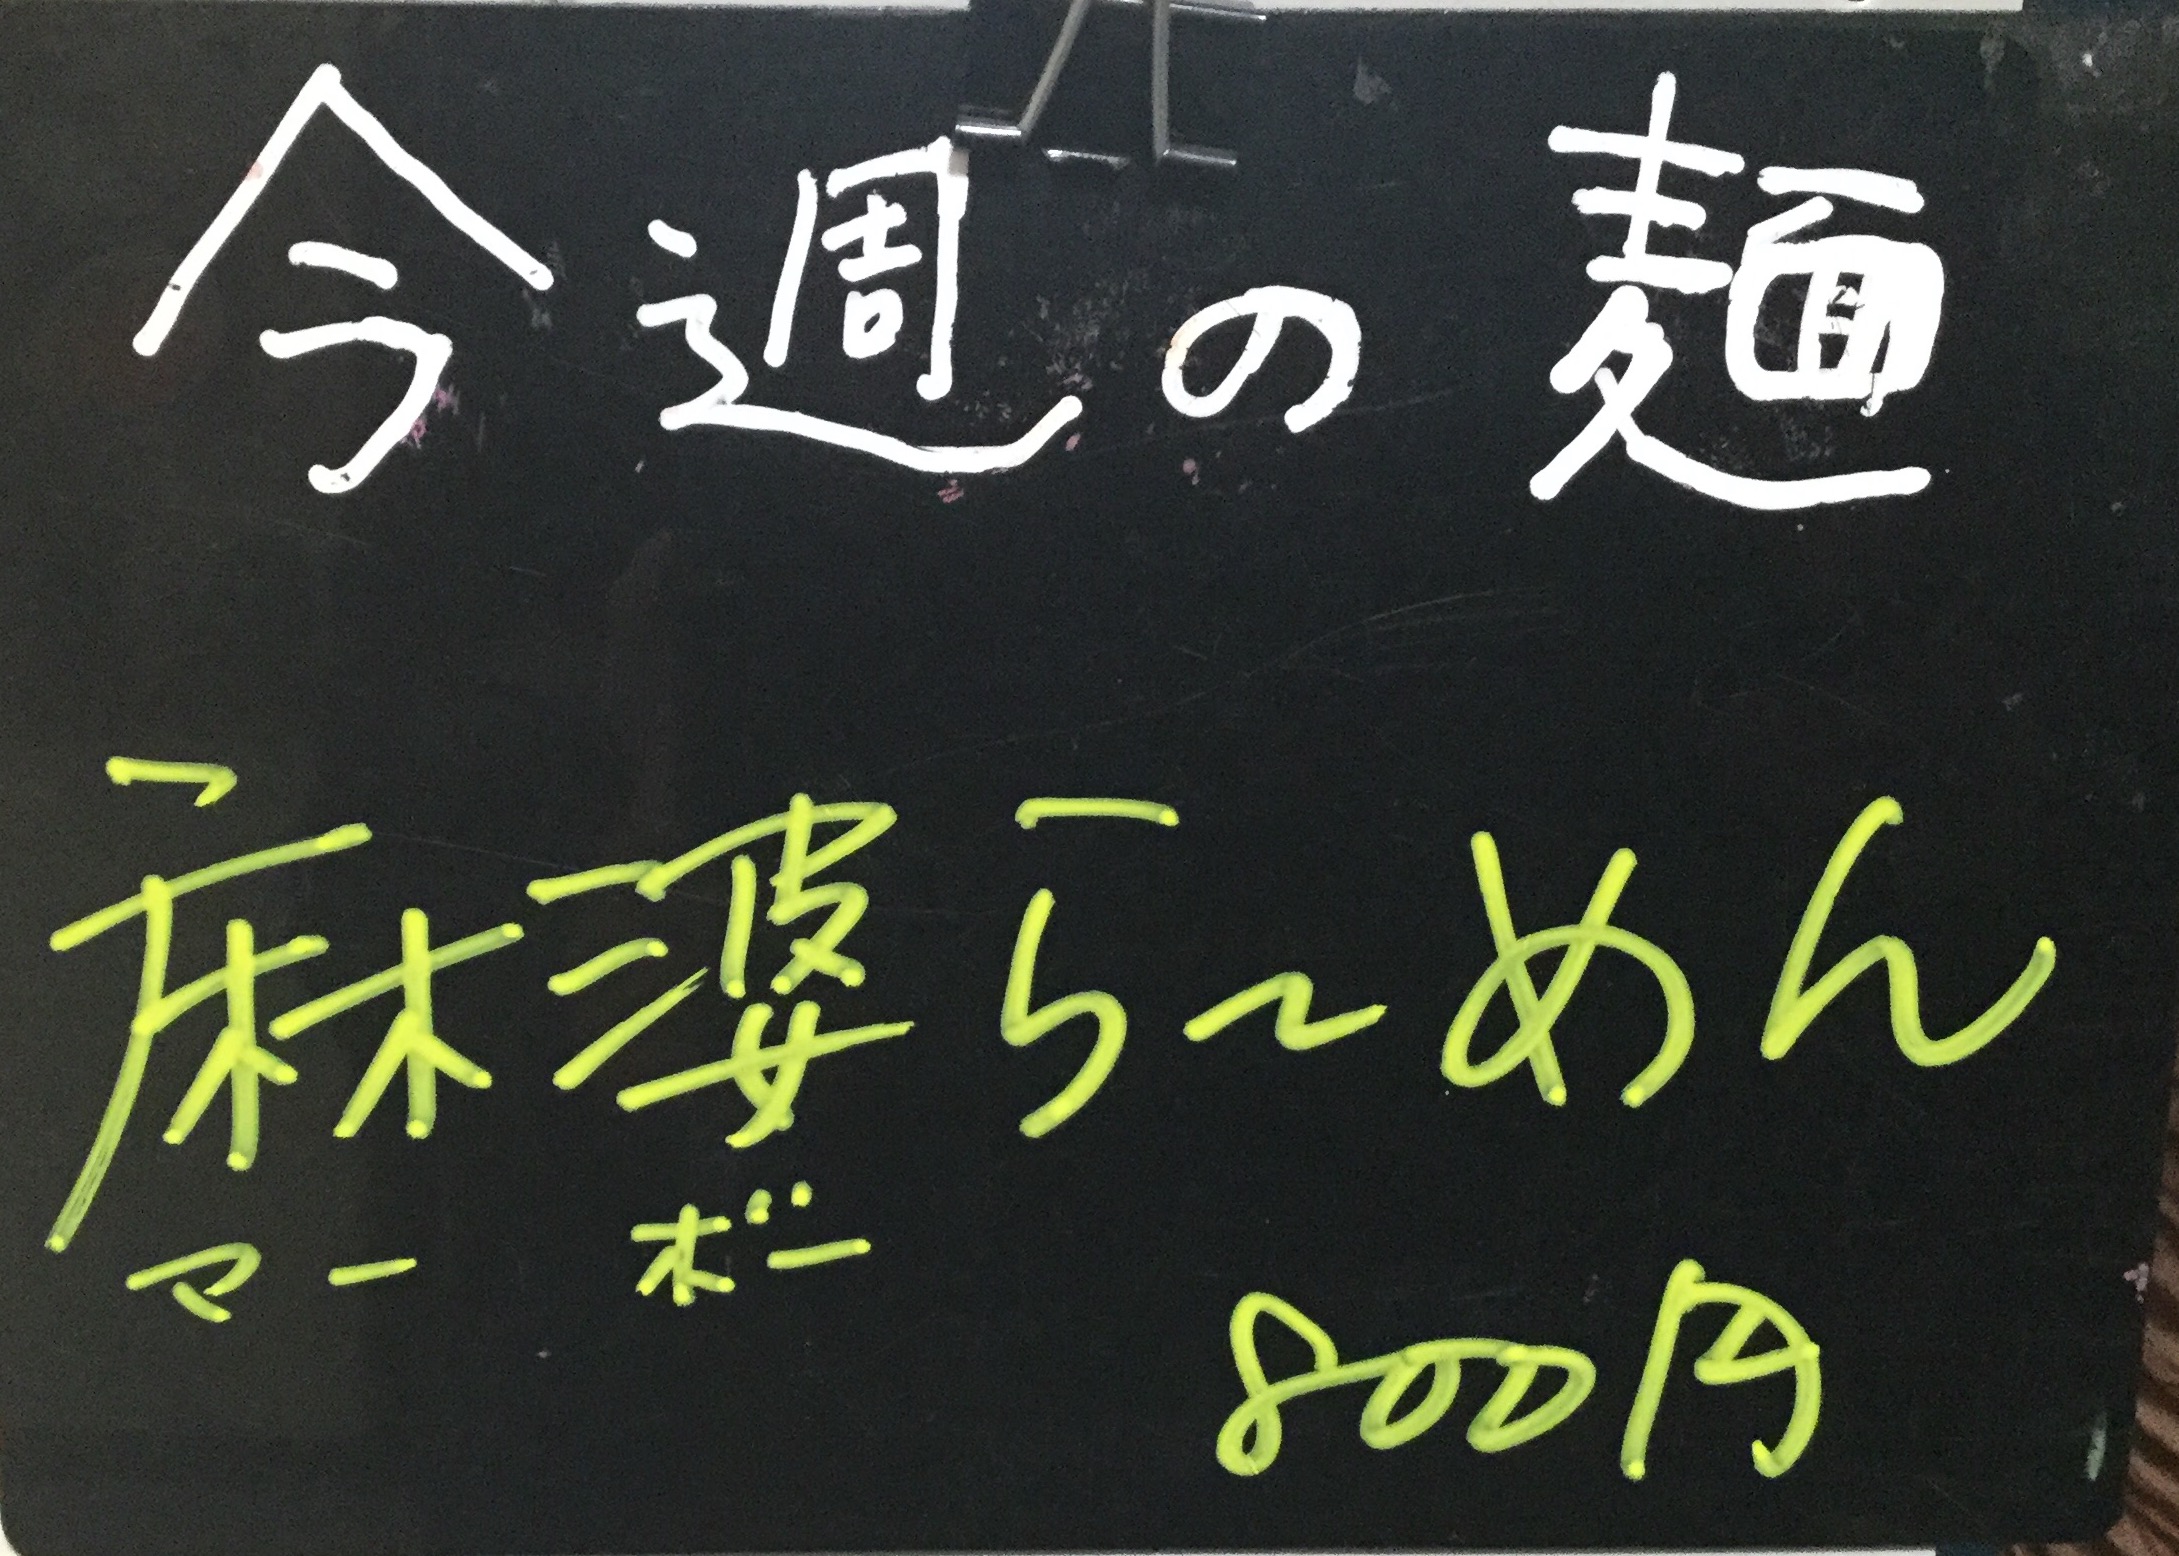 今週の麺
麻婆ら〜めん
マーボー
800円